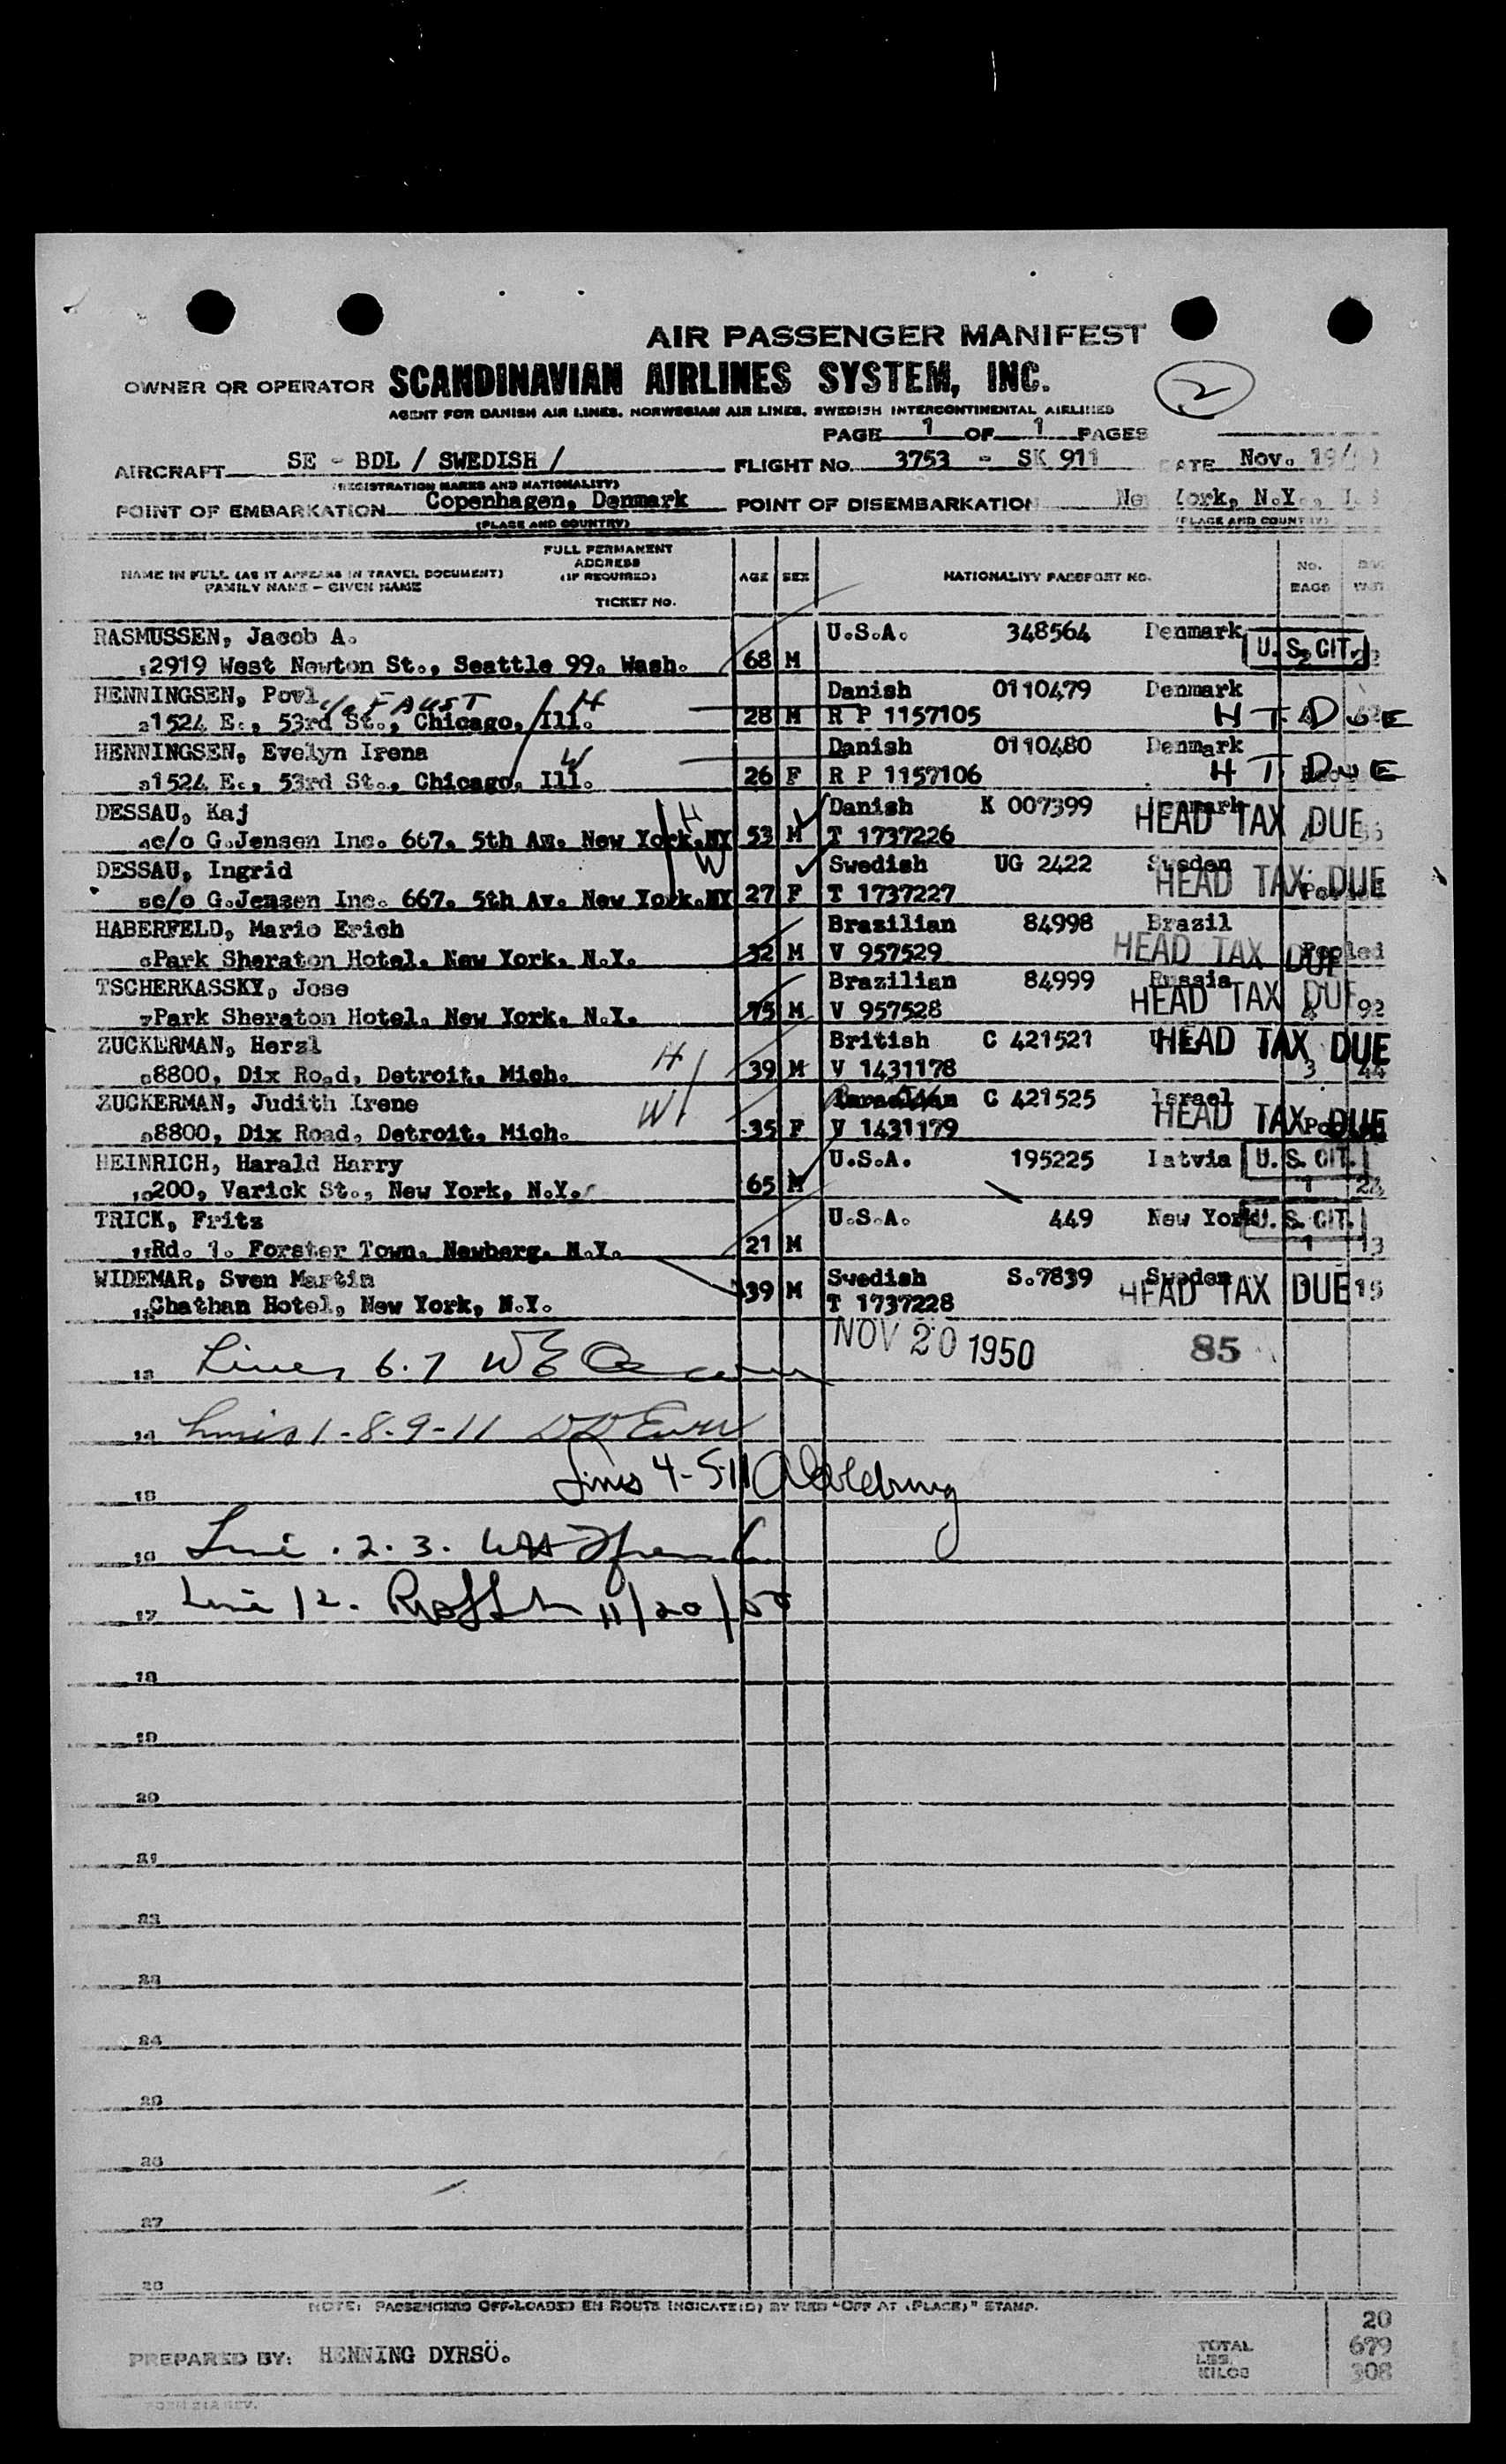 AIR PASSENGER MANIFEST
OWNER OR OPERATOR SCANDINAVIAN AIRLINES SYSTEM, INC. 2
AGENT FOR DANISH AIR LINES, NORWEGIAN AIR LINES, SWEDISH INTERCONTINENTAL AIRLINES
PAGE 1 OF 1 PAGES
AIRCRAFT SE - BDL / SWEDISH / FLIGHT NO. 3753 - SK 911 DATE Nov. 19/
(REGISTRATION MARKS AND NATIONALITY)
POINT OF EMBARKATION Copenhagen, Denmark POINT OF DISEMBARKATION New York, N.Y.,
(PLACE AND COUNTRY) (PLACE AND COUNTRY)
NAME IN FULL (AS IT APPEARS IN TRAVEL DOCUMENT) FAMILY NAME - GIVEN NAME
FULL PERMANENT ADDRESS (IF REQUIRED) TICKET NO.
AGE SEX NATIONALITY PASSPORT NO. No. BAGS
RASMUSSEN, Jacob A. U.S.A. 348564 Denmark U.S. CIT.
1 2919 West Newton St., Seattle 99. Wash. 68 M
HENNINGSEN, Povl c/o FAUST H Danish 0110479 Denmark
2 1524 E., 53rd St., Chicago, Ill. 28 M R P 1157105 H T DUE
HENNINGSEN, Evelyn Irena W Danish 0110480 Denmark
3 1524 E., 53rd St., Chicago, Ill. 26 F R P 1157106 H T DUE
DESSAU, Kaj H Danish K 007399 Denmark HEAD TAX DUE
4 c/o G.Jensen Inc. 667. 5th Av. New York.NY 53 M T 1737226
DESSAU, Ingrid W Swedish UG 2422 Sweden HEAD TAX DUE
5 c/o G.Jensen Inc. 667. 5th Av. New York.NY 27 F T 1737227 Pooled
HABERFELD, Mario Erich Brazilian 84998 Brazil HEAD TAX DUE
6 Park Sheraton Hotel. New York. N.Y. 32 M V 957529 Pooled
TSCHERKASSKY, Jose Brazilian 84999 Russia HEAD TAX DUE
7 Park Sheraton Hotel. New York. N.Y. 75 M V 957528 4 92
ZUCKERMAN, Herzl H British C 421521 HEAD TAX DUE
8 8800, Dix Road, Detroit. Mich. 39 M V 1431178 3 44
ZUCKERMAN, Judith Irene W Israelian C 421525 Israel HEAD TAX DUE
9 8800, Dix Road, Detroit. Mich. 35 F V 1431179
HEINRICH, Harald Harry U.S.A. 195225 Latvia U.S. CIT.
10 200, Varick St., New York, N.Y. 65 M 1 24
TRICK, Fritz U.S.A. 449 New York U.S. CIT.
11 Rd. 1. Forster Town. Newberg. N.Y. 21 M 1 13
WIDEMAR, Sven Martin Swedish S.7839 Sweden HEAD TAX DUE
12 Chathan Hotel, New York, N.Y. 39 M T 1737228 15
NOV 20 1950 85
13 Lines 6.7
14 Lines 1-8-9-11
15 Lines 4-5-11
16 Line . 2. 3.
17 Line 12. 11/20/50
18
19
20
21
22
23
24
25
26
27
28
NOTE: PASSENGERS OFF-LOADED EN ROUTE INDICATE(D) BY RED "OFF AT (PLACE)" STAMP.
20
PREPARED BY: HENNING DYRSÖ. TOTAL LBS. 679
KILOS 308
FORM 21A REV.